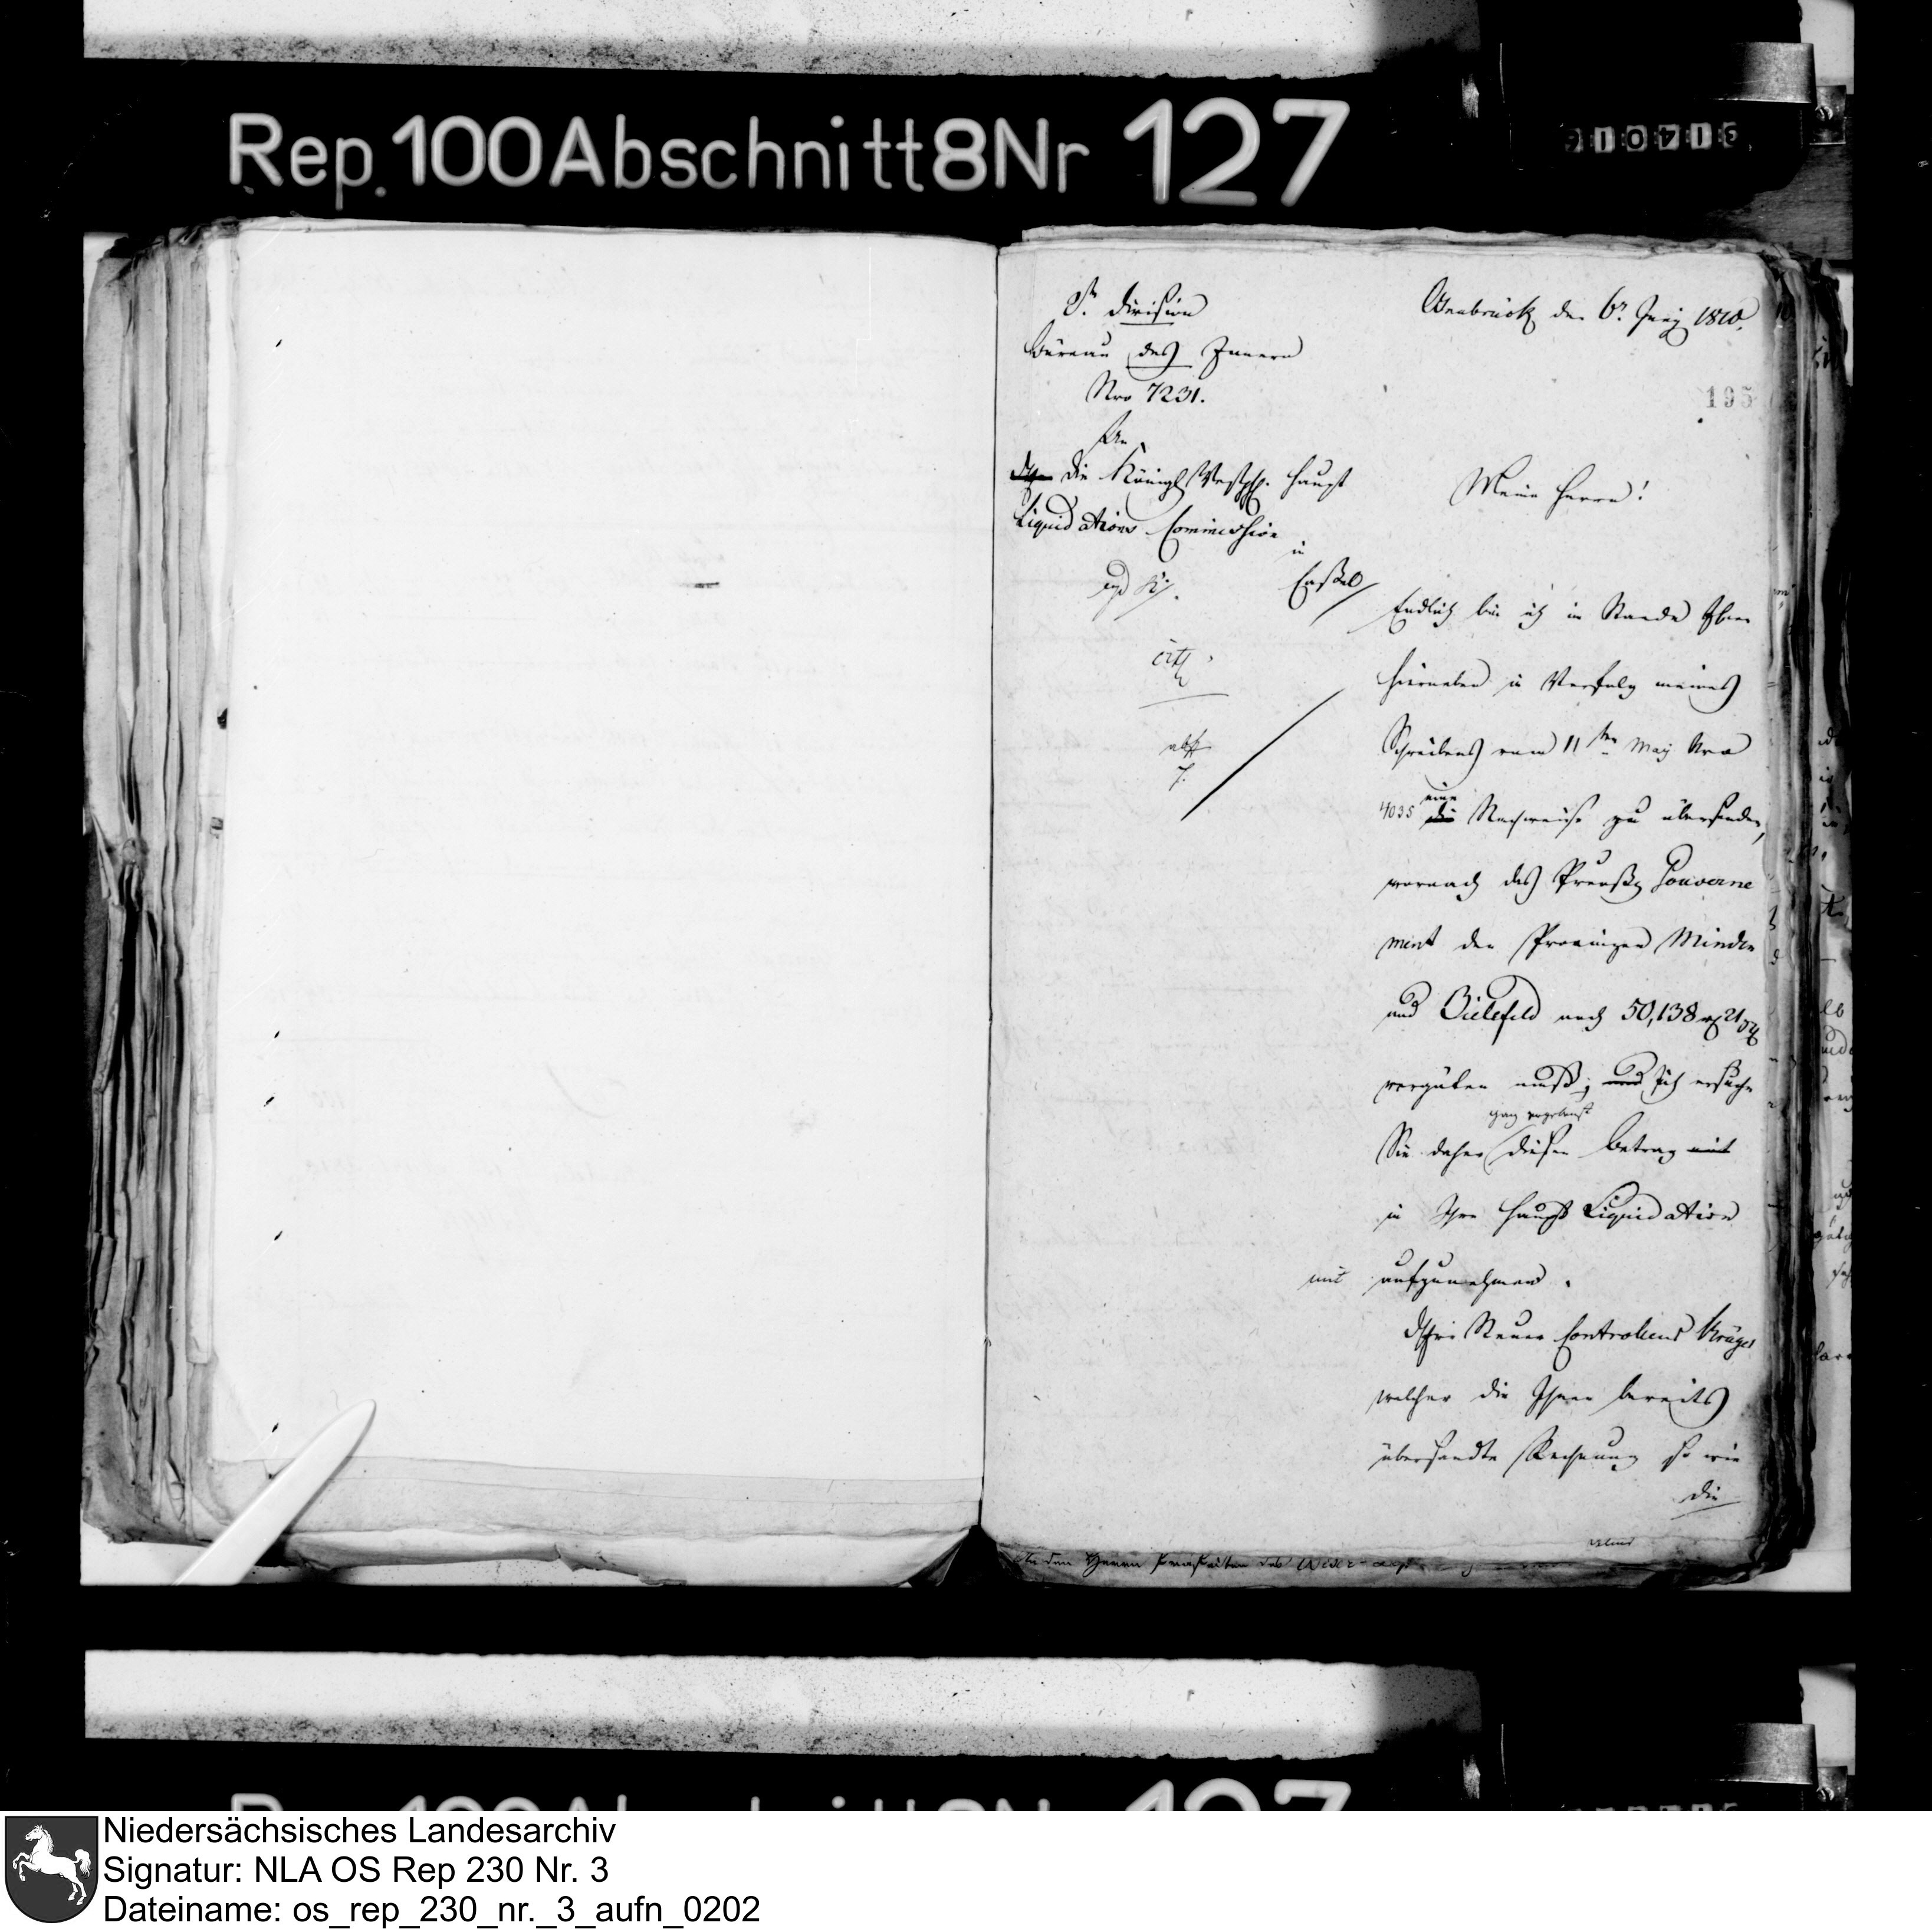 Rep. 100 Abschnitt 8 Nr 127
Division
Bureau des Innern
Nro 7231.
An
die Königl. Westph. Haupt
Liquidations Commission
in
Cassel
Osnabrück den 6n. Juny 1810.
195
Meine Herrn!
Endlich bin ich im Stande Ihnen
hierneben in Verfolg meines
Schreibens vom 11ten May Nro
4035 eine Nachweise zu übersenden,
wornach das Preuß. Gouverne
ment den Provinzen Minden
und Bielefeld noch 50,138 rl 21
vergüten muß; Ich ersuche
ganz ergebenst
Sie daher diesen Betrag mit
in Ihre Haupt Liquidation
mit aufzunehmen.
Steuer Controleur Krüger
welcher die Ihnen bereits
übersandte Rechnung so wie
die
An den Herrn Präfecten des Weser-
Niedersächsisches Landesarchiv
Signatur: NLA OS Rep 230 Nr. 3
Dateiname: os_rep_230_nr._3_aufn_0202